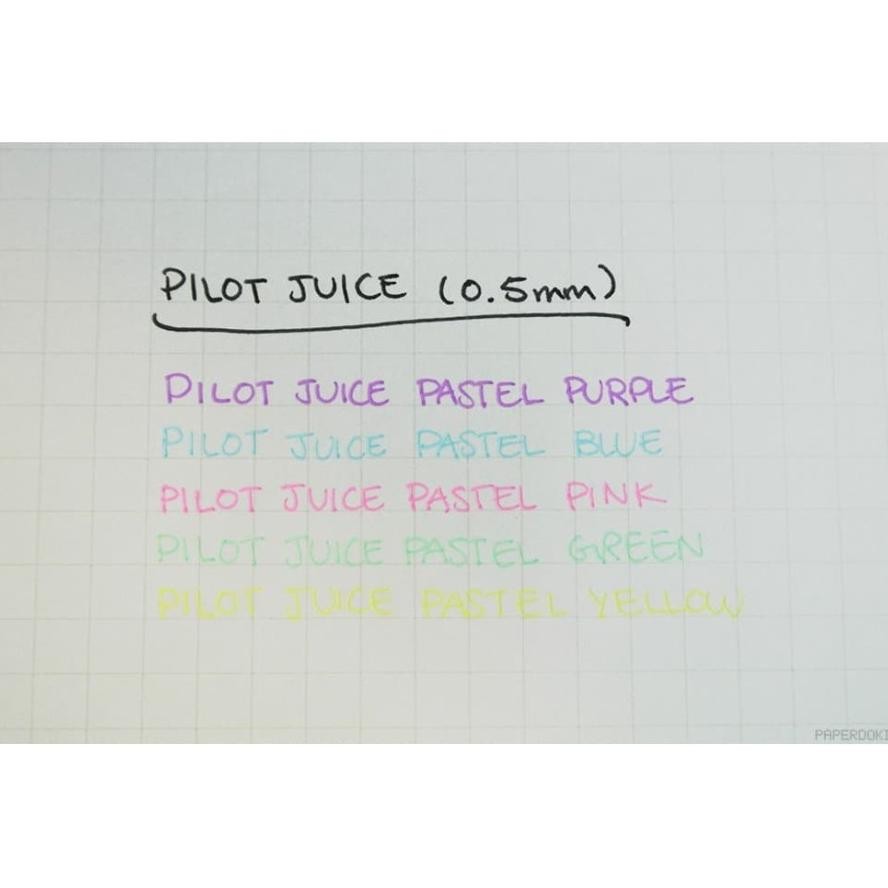 PILOT JUICE (0.5mm)
PILOT JUICE PASTEL PURPLE
PILOT JUICE PASTEL BLUE
PILOT JUICE PASTEL PINK
PILOT JUICE PASTEL GREEN
PILOT JUICE PASTEL YELLOW
PAPERDOKI